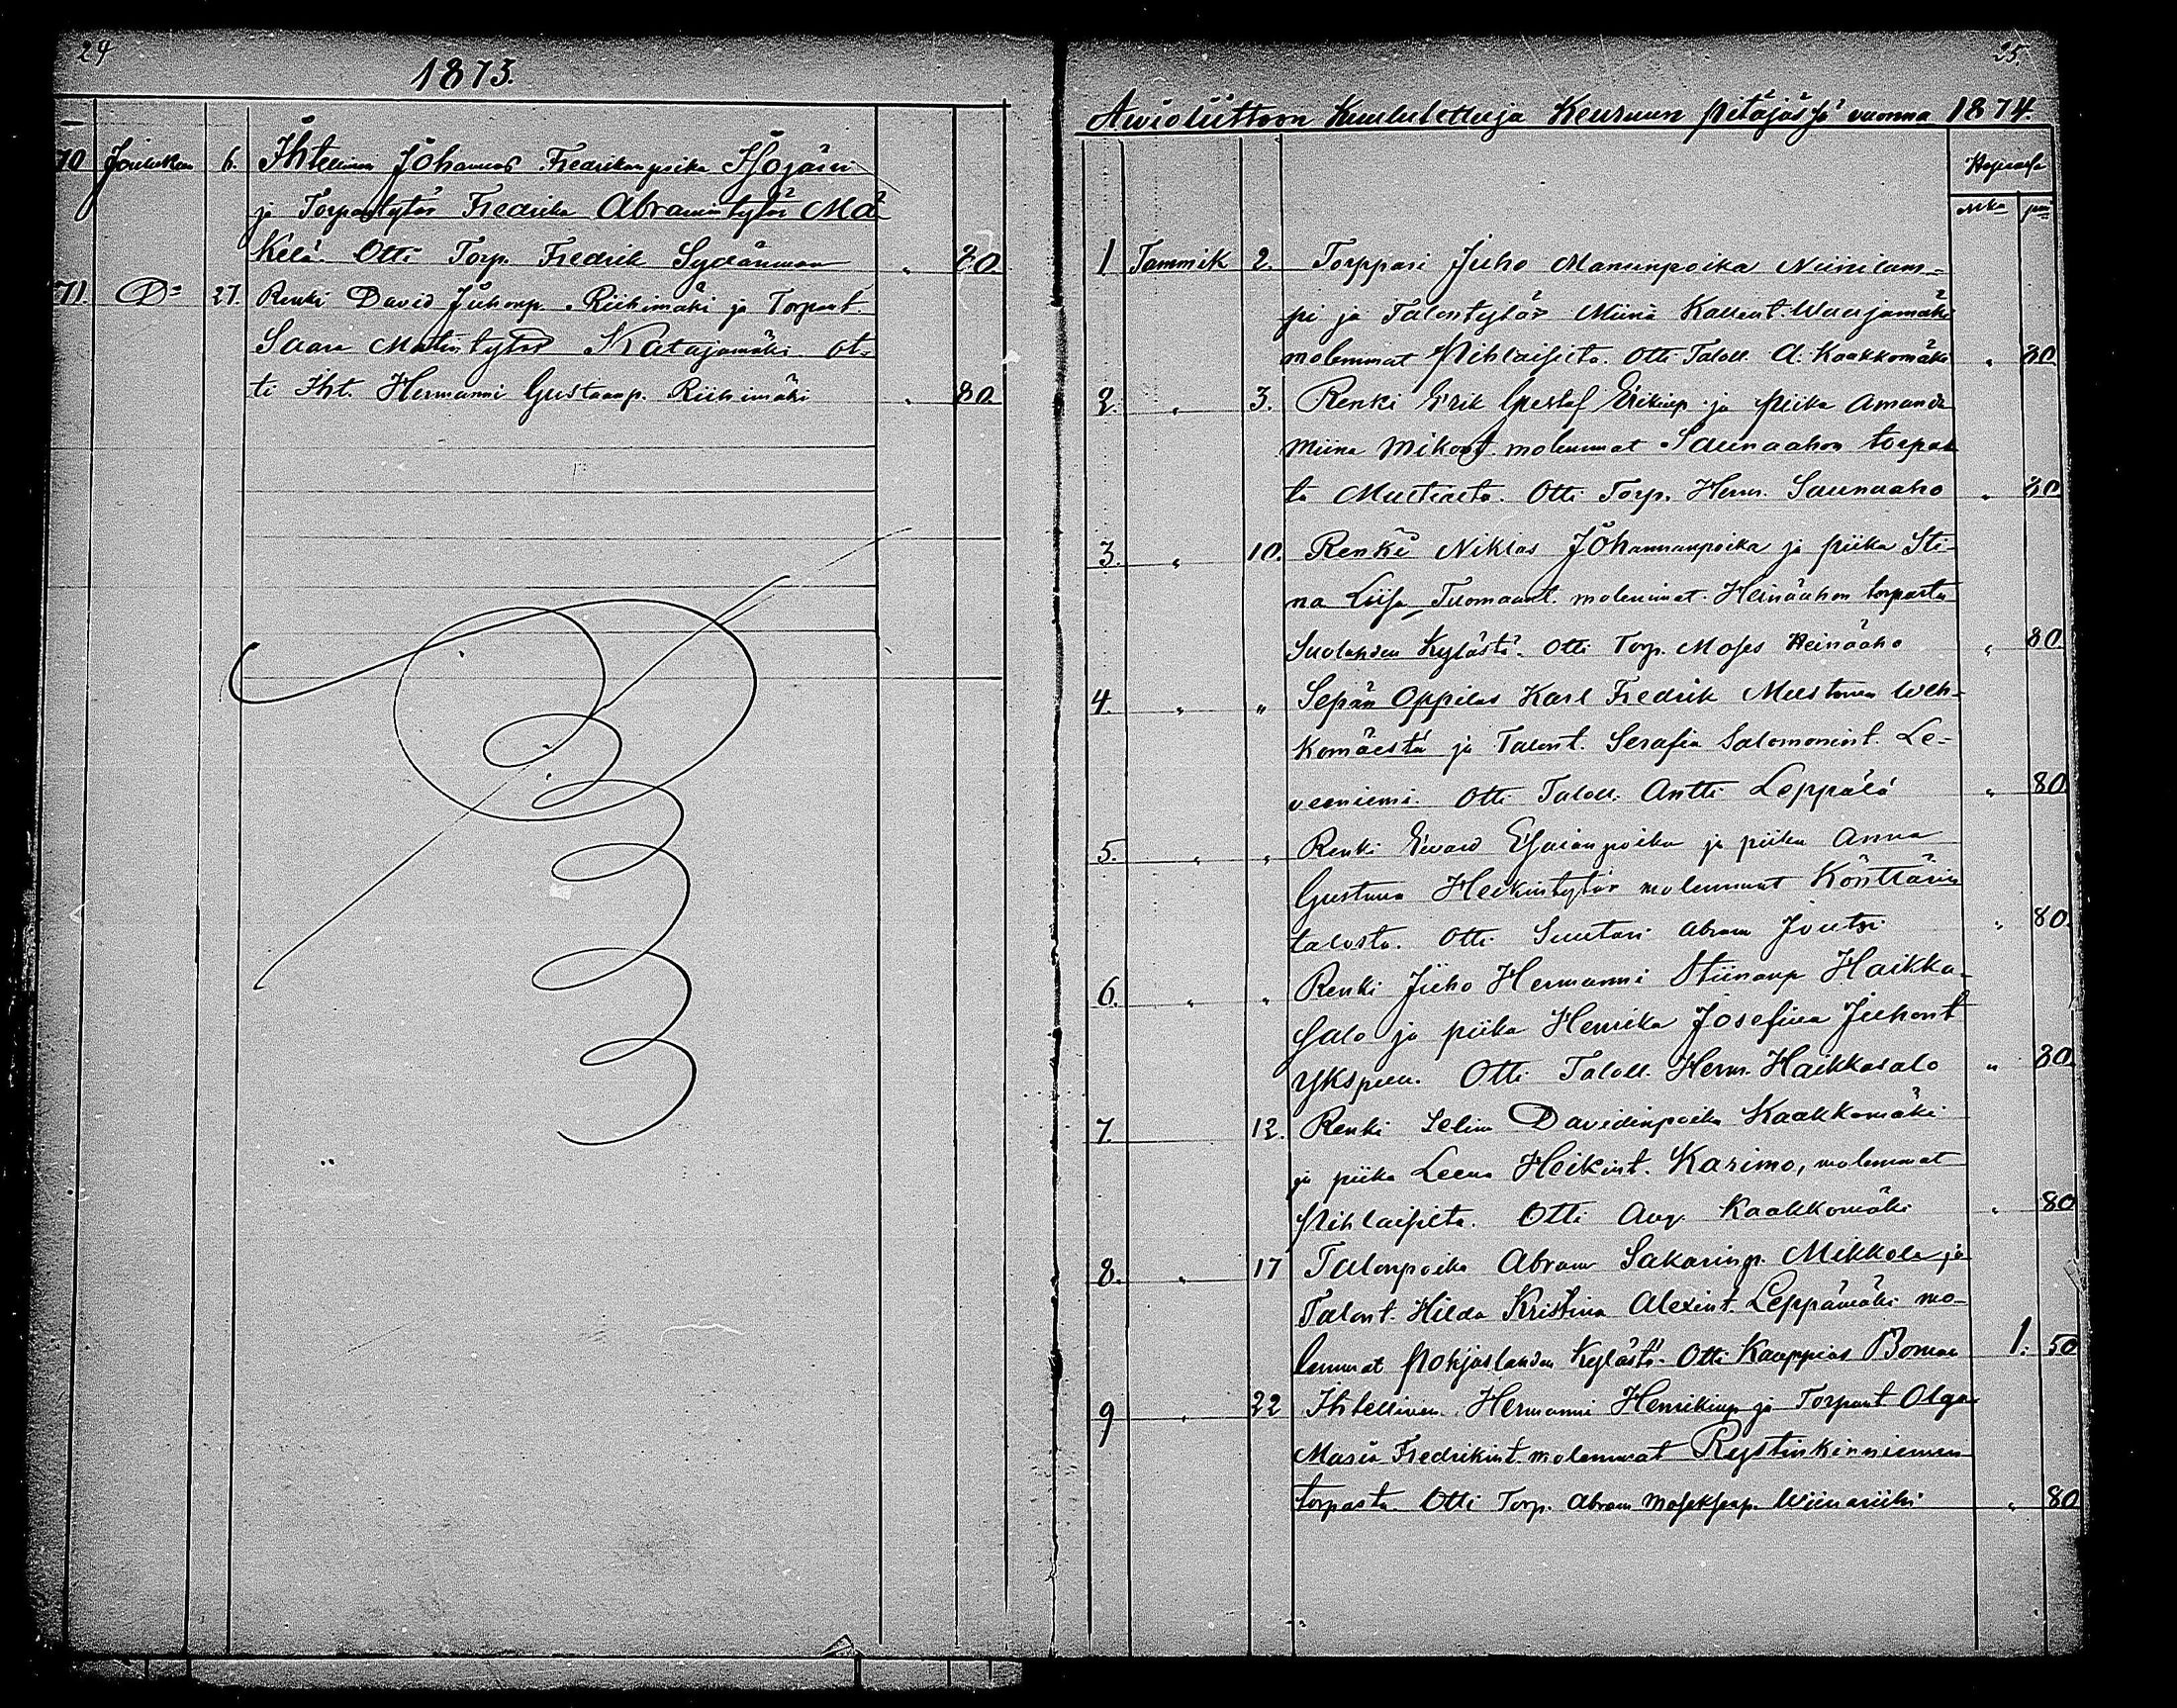 24
1873.
70 Joulukun 6. Ihtellinen Johannes Fredrikanpoika
ja Torpantytär Fredrika Abramintytär Mä-
kelä. Otti Torp. Fredrik Sydänmaa " 80
71. Do 27. Renki David Juhonp. Riihimäki ja Torpant.
Saara Matintytär Katajamäki ot-
ti Iht. Hermanni Gustaanp. Riihimäki " 80
25.
Awioliittoon Kuulutettuja Keuruun Pitäjässä vuonna 1874.
Hopeassa
mka pni
1 Tammik 2. Torppari Juho Manunpoika Niinilam-
pi ja Talontytär Miina Kallent. Waarjamäki
molemmat Pihlaisista. Otti Taloll. A. Kaakkomäki " 80
2. " 3. Renki Erik Gustaf Erikinp. ja piika Amanda
Miina Mikont. molemmat Saunaahon torpas
ta. Otti Torp. Herm. Saunaaho " 80
3. " 10. Renki Niklas Johannanpoika ja piika Sti-
na Liisa Tuomaant. molemmat Heinäahon torpasta
Suolahden Kylästä. Otti Torp. Moses Heinäaho " 80.
4. " " Sepän Oppilas Karl Fredrik Mustonen Weh-
komäestä ja Talont. Serafia Salomonint. Le-
veeniemi. Otti Taloll. Antti Leppälä " 80
5. " " Renki Edvard Esaianpoika ja piika Anna
Gustava Heikintytär molemmat Könttärin
talosta. Otti Suutari Abram Joutsi " 80.
6. " " Renki Juho Hermanni Stiinanp Haikka-
salo ja piika Henrika Josefina Juhont
Ykspuu. Otti Taloll. Herm. Haikkasalo " 80
7. 12. Renki Selim Davidinpoika Kaakkomäki
ja piika Leena Heikint. Karimo, molemmat
Pihlaisista. Otti Aug. Kaakkomäki " 80
8. " 17 Talonpoika Abram Sakarinp. Mikkola ja
Talont. Hilda Kristina Alexint. Leppämäki mo-
lemmat Pohjaslahden Kylästä. Otti Kauppias Boman 1. 50
9 " 22 Ihtellinen Hermanni Henrikinp ja Torpant Olga
Maria Fredrikint. molemmat Rystinkinniemen
torpasta. Otti Torp. Abram Moseksenp. " 80